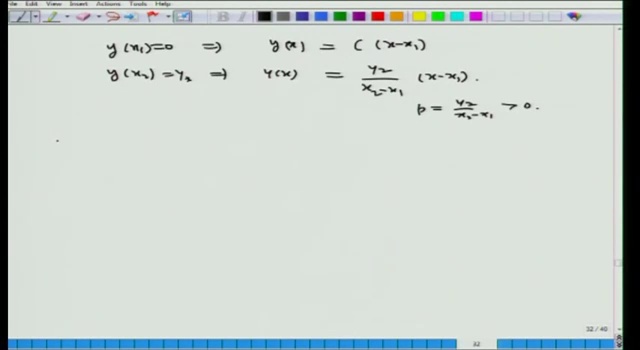 File Edit View Insert Actions Tools Help
y(x₁)=0 ⇒ y(x) = C (x-x₁)
y(x₂)=y₂ ⇒ y(x) = y₂/(x₂-x₁) (x-x₁).
p = y₂/(x₂-x₁) > 0.
32 / 40
32